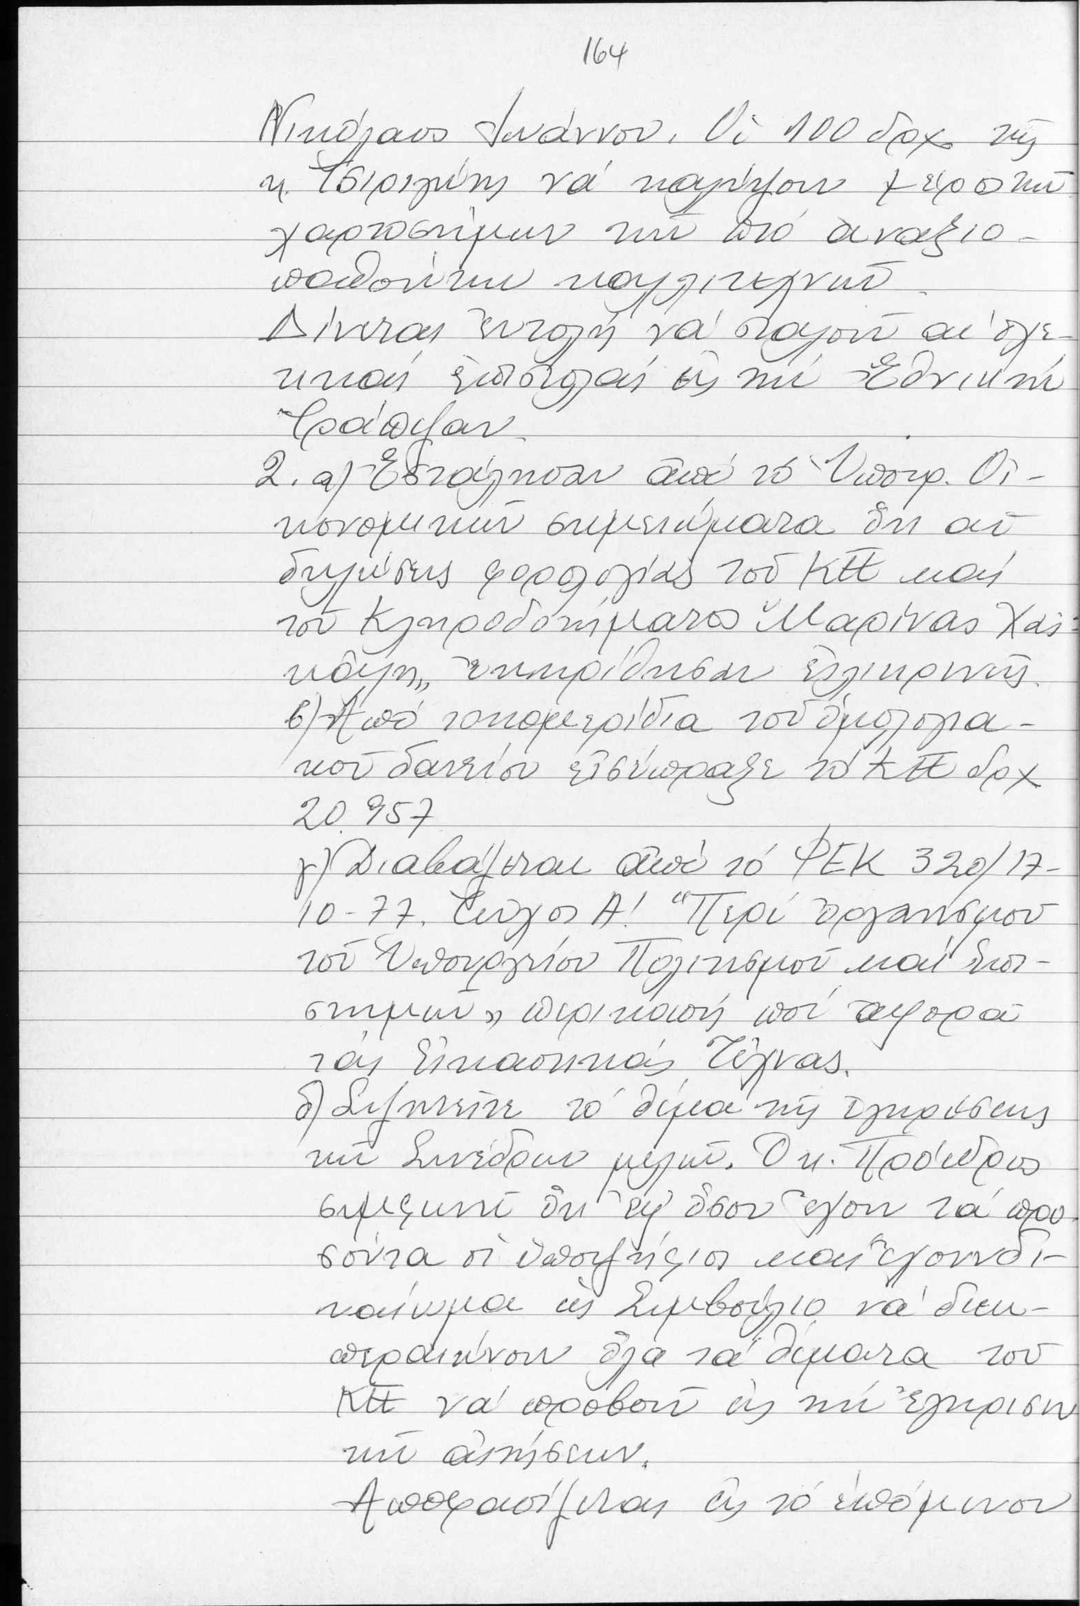 164
Νικόλαος Ἰωάννου. Οἱ 100 δρχ. τῆς
κ. Τσιριγώτης νά καλύψουν μέρος τῶν
χαρτοσήμων τῶν πιό ἀναξιο-
παθούντων καλλιτεχνῶν.
Δίνεται ἐντολή νά σταλοῦν αἱ σχε-
τικαί ἐπιστολαί εἰς τήν Ἐθνικήν
Τράπεζαν.
2. α) Ἐστάλησαν ἀπό τό Ὑπουρ. Οἰ-
κονομικῶν σημειώματα ὅτι αἱ
δηλώσεις φορολογίας τοῦ ΚΠ καί
τοῦ Κληροδοτήματος "Μαρίνας
ἐκκρίθησαν εἰλικρινεῖς.
β) Ἀπό τοκομερίδια τοῦ ὁμολογια-
κοῦ δανείου εἰσέπραξε τό ΚΠ δρχ
20.957
γ) Διαβάζεται ἀπό τό ΦΕΚ 320/17-
10-77. Τεῦχος Α! "Περί ὀργανισμοῦ
τοῦ Ὑπουργείου Πολιτισμοῦ καί Ἐπι-
στημῶν" περικοπή πού ἀφορᾶ
τάς Εἰκαστικάς Τέχνας.
δ) Συζητεῖτε τό θέμα τῆς ἐγκρίσεως
τῶν Συνέδρων μελῶν. Ὁ κ. Πρόεδρος
συμφωνεῖ ὅτι ἐφ' ὅσον ἔχουν τά προ-
σόντα οἱ ὑποψήφιοι καί ἔχουν δι-
καίωμα ὡς Συμβούλιο νά διεκ-
περαιώνουν ὅλα τά θέματα τοῦ
ΚΠ νά προβοῦν εἰς τήν ἔγκρισιν
τῶν αἰτήσεων.
Ἀποφασίζεται εἰς τό ἑπόμενον